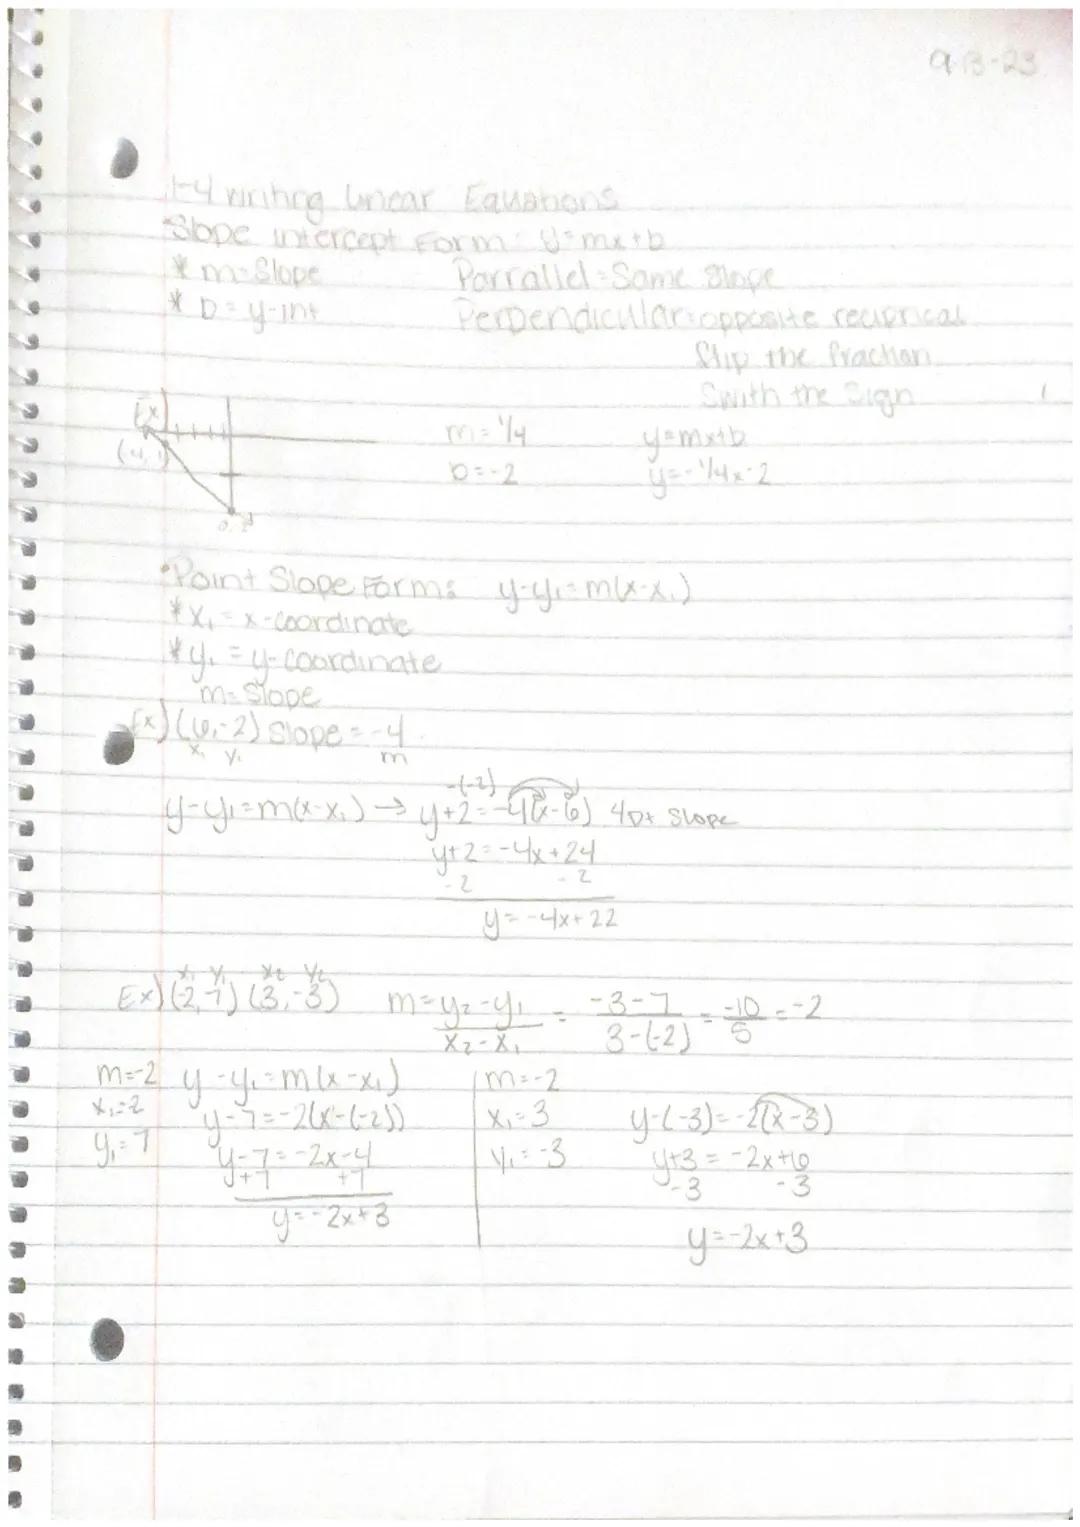 9-13-23
1-4 writing Linear Equations
Slope intercept Form: y=mx+b
* m=Slope Parrallel=Same Slope
* b=y-int Perpendicular=opposite reciprical
flip the fraction
Swith the sign
Ex)
m=1/4 y=mx+b
b=-2 y=-1/4x-2
Point Slope Form: y-y₁=m(x-x₁)
* x₁ = x-coordinate
* y₁ = y-coordinate
m=Slope
Ex) (6,-2) Slope=-4
x₁ y₁ m
-(-2)
y-y₁=m(x-x₁) → y+2=-4(x-6) Slope
y+2=-4x+24
-2 -2
y=-4x+22
x₁ y₁ x₂ y₂
Ex) (-2,7) (3,-3) m=y₂-y₁/x₂-x₁ = -3-7/3-(-2) = -10/5 = -2
m=-2 y-y₁=m(x-x₁) m=-2
x₁=-2 y-7=-2(x-(-2)) x₁=3 y-(-3)=-2(x-3)
y₁=7 y-7=-2x-4 y₁=-3 y+3=-2x+6
+7 +7 -3 -3
y=-2x+3 y=-2x+3